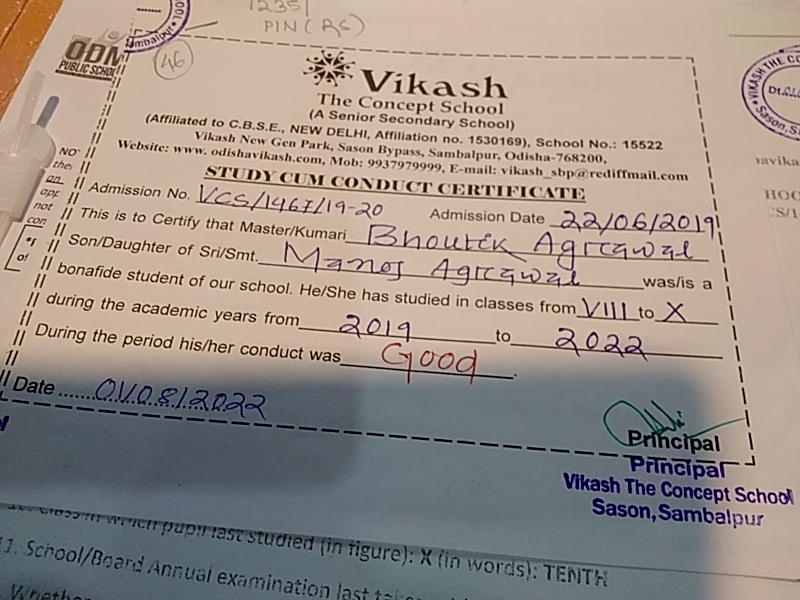 1235
PIN (RS)
Sambalpur
46
ODM
PUBLIC SCHOOL
Vikash
The Concept School
(A Senior Secondary School)
(Affiliated to C.B.S.E., NEW DELHI, Affiliation no. 1530169), School No.: 15522
Vikash New Gen Park, Sason Bypass, Sambalpur, Odisha-768200,
Website: www. odishavikash.com, Mob: 9937979999, E-mail: vikash_sbp@rediffmail.com
STUDY CUM CONDUCT CERTIFICATE
Admission No. VCS/1467/19-20 Admission Date 22/06/2019
This is to Certify that Master/Kumari Bhoutik Agrawal
Son/Daughter of Sri/Smt. Manoj Agrawal was/is a
bonafide student of our school. He/She has studied in classes from VIII to X
during the academic years from 2019 to 2022
During the period his/her conduct was Good
Date ...... 01/08/2022
Principal
Principal
Vikash The Concept School
Sason, Sambalpur
class in which pupil last studied (in figure): X (in words): TENTH
11. School/Board Annual examination last